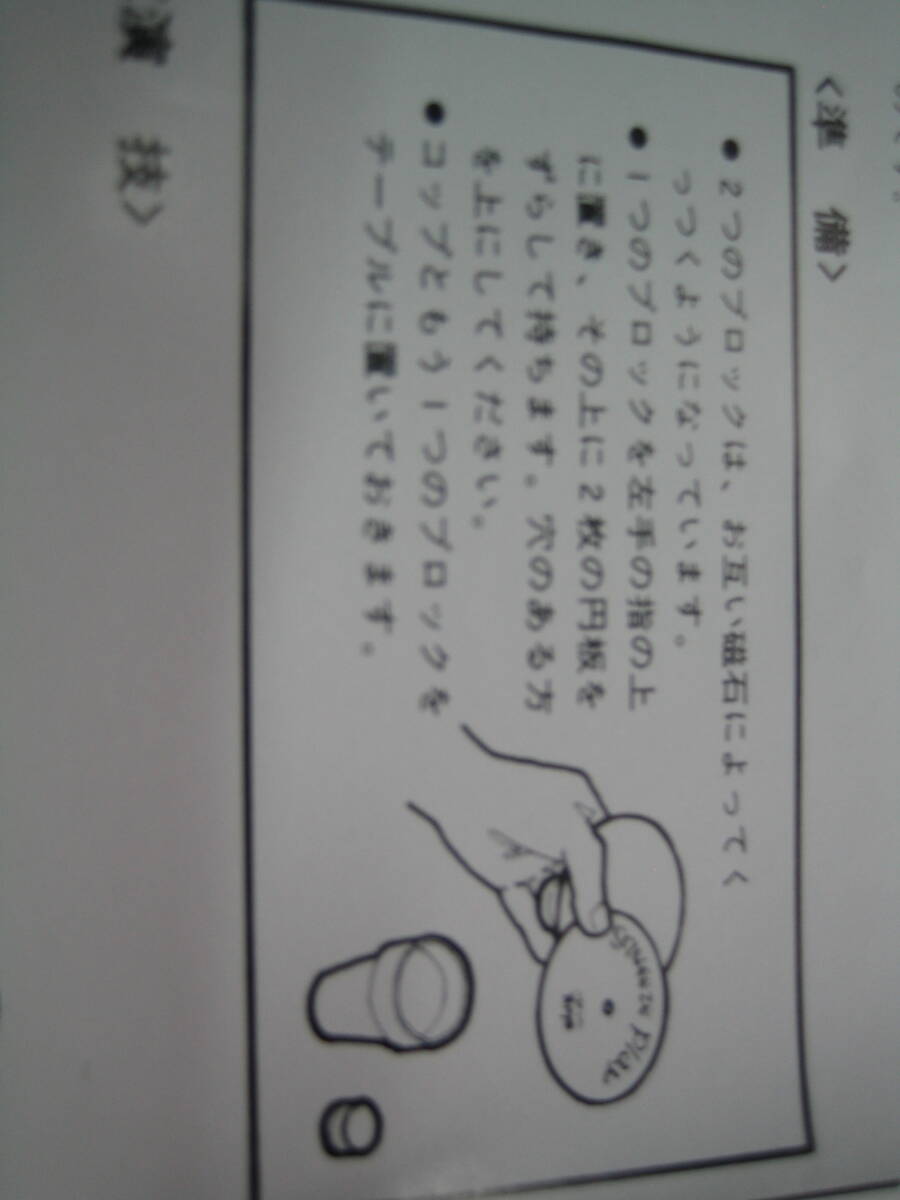 <準 備>
● 2つのブロックは、お互い磁石によってく
っつくようになっています。
● 1つのブロックを左手の指の上
に置き、その上に2枚の円板を
ずらして持ちます。穴のある方
を上にしてください。
● コップともう1つのブロックを
テーブルに置いておきます。
演 技>